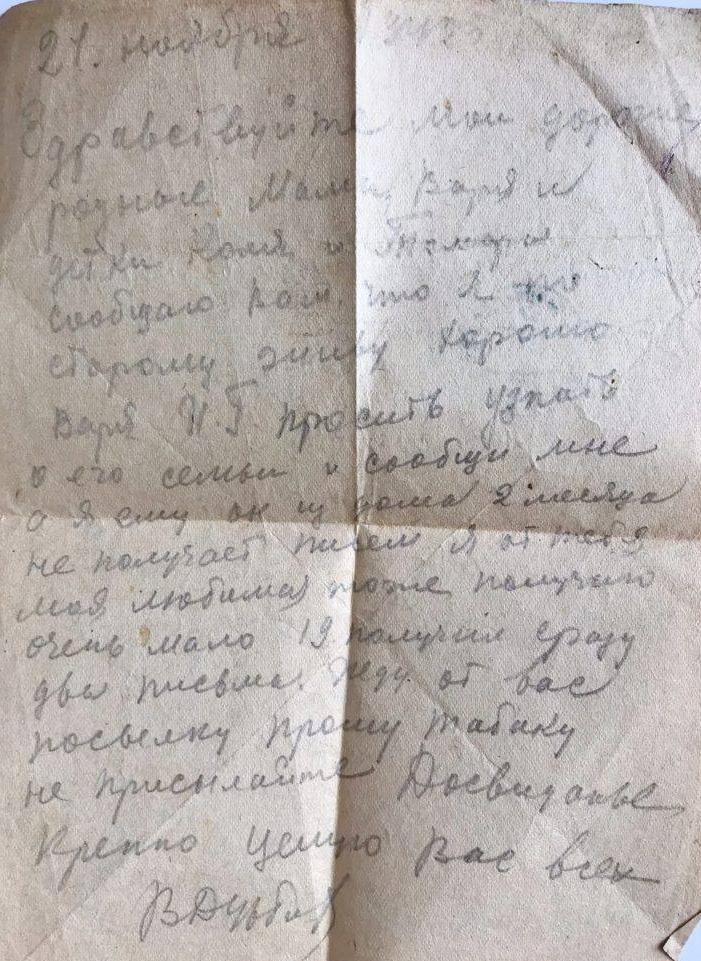 21. ноября
Здравствуйте мои дорогие
родные Мама, Варя и
детки Коля и Тамара
сообщаю Вам, что я по
старому живу хорошо
Варя И.Г. просить узнать
о его семьи и сообщи мне
а я ему он из дома 2 месяца
не получает писем я от тебя
моя любимая тоже получаю
очень мало 19 получил сразу
два письма. Жду от вас
посылку прошу табаку
не присылайте Досвиданье
Крепко целую Вас всех